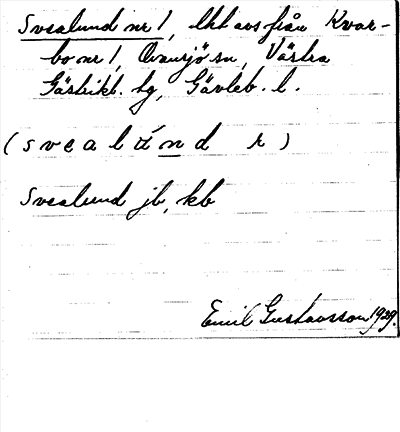 Svealund nr 1, lht avs från Kvar-
bo nr 1, Ovansjö sn, Västra
Gästrikl. tg, Gävleb. l.
(svealund r)
Svealund jb, kb
Emil Gustavsson 1929.